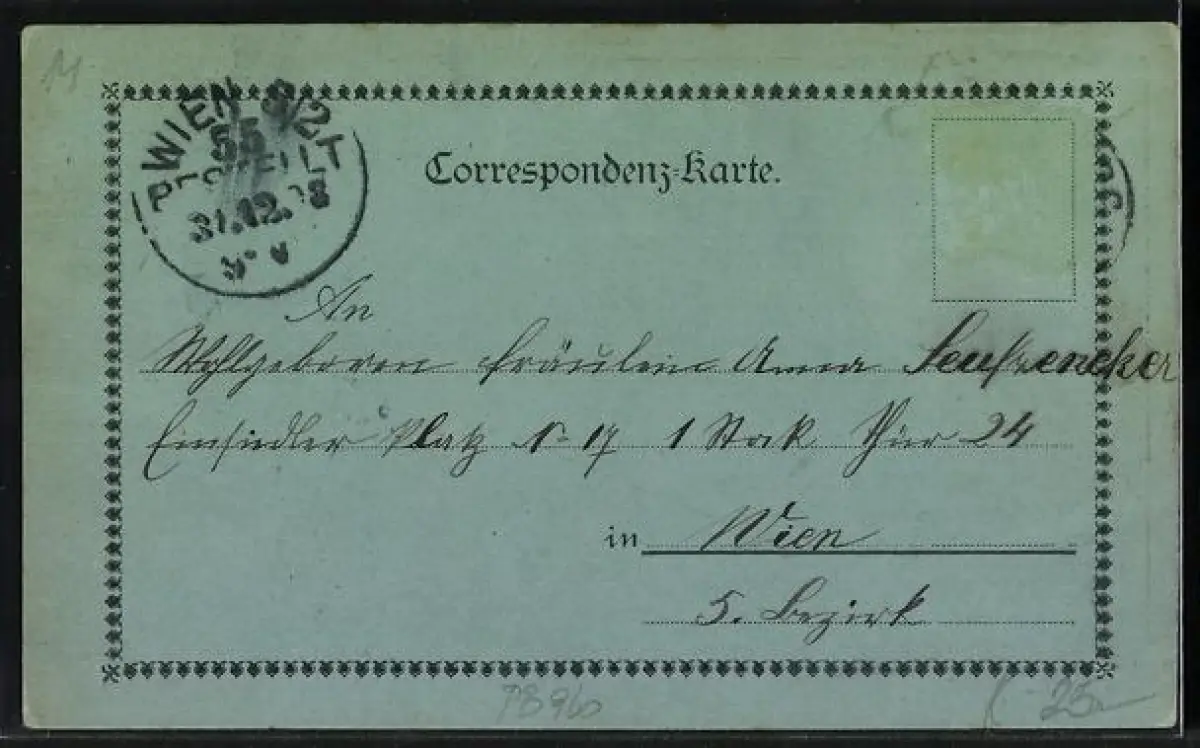 WIEN 3/2T
55
BESTELLT
31.12.98
Correspondenz-Karte.
An
Wohlgeboren Fräulein Anna
Einsiedler Platz No 17 1 Stok Thür 24
in Wien
5. Bezirk
PB960
25